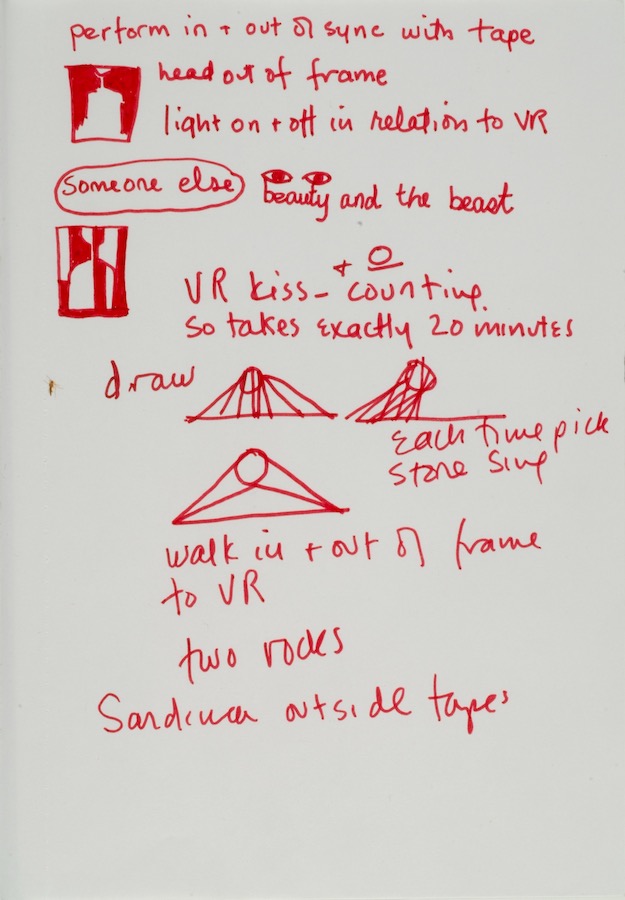 perform in + out of sync with tape
head out of frame
light on + off in relation to VR
someone else beauty and the beast
VR kiss - + counting.
so takes exactly 20 minutes
draw
each time pick
stone sing
walk in + out of frame
to VR
two rocks
Sardinia outside tapes